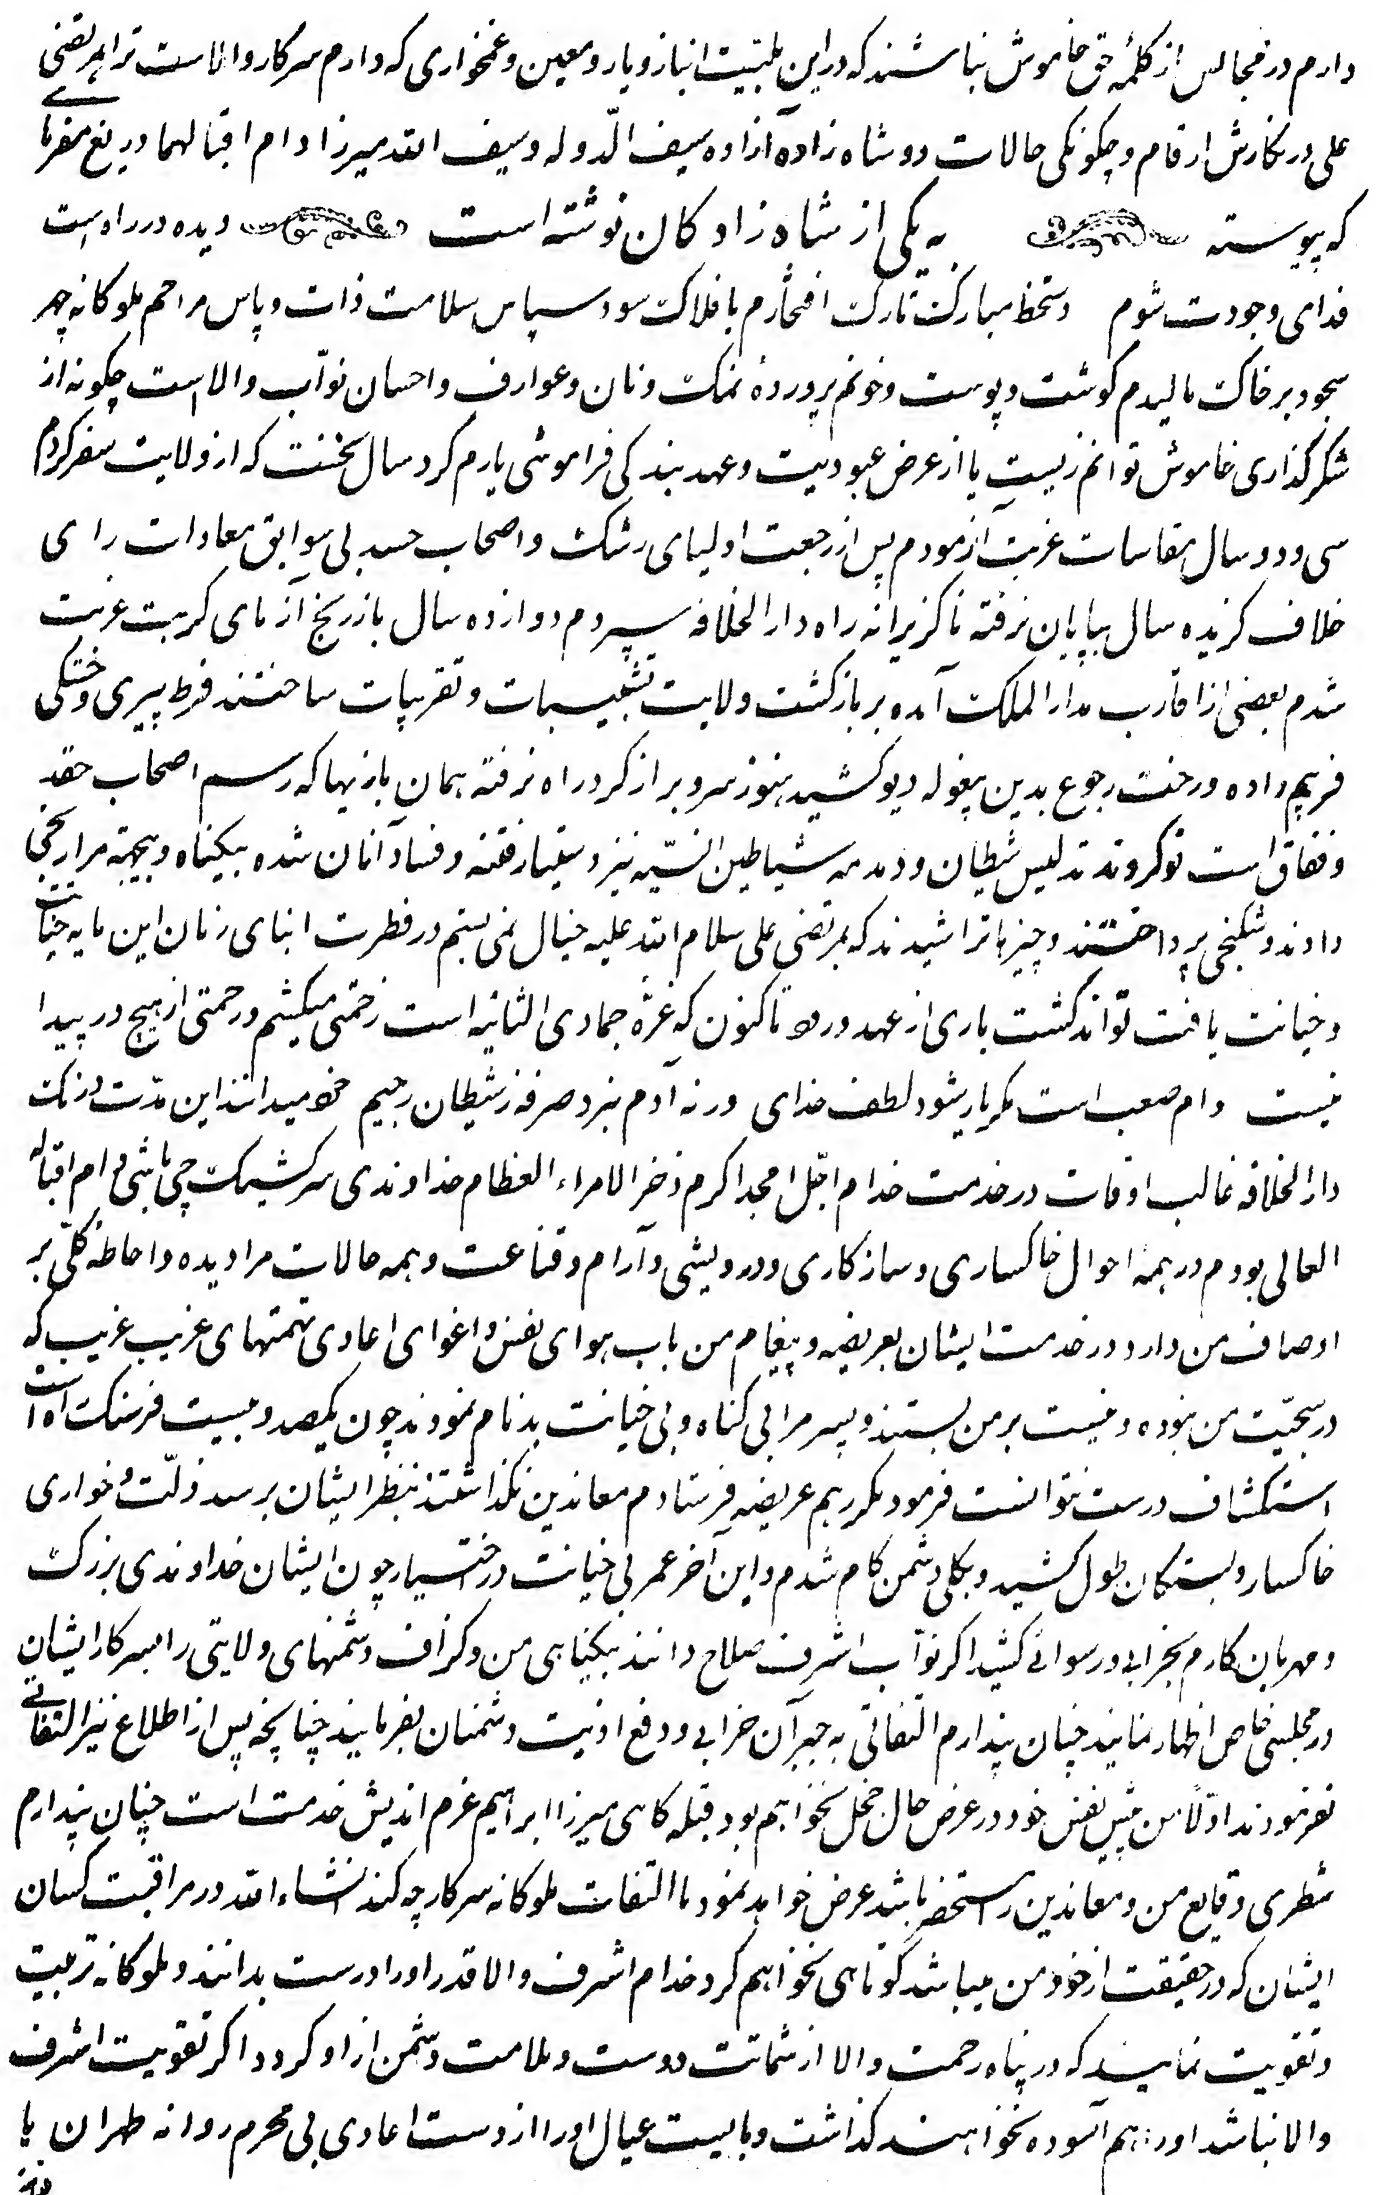 دارم در مجالس از کلمه حق خاموش نباشند که در این بلیت انباز و یار و معین و غمخواری که دارم سرکار والاست ترا بمرتضی
علی در نگارش ارقام و چگونگی حالات دو شاه زاده آزاده سیف الدّوله و سیف الله میرزا دام اقبالهما دریغ مفرمای
که پیوسته به یکی از شاه زادگان نوشته است دیده در راه است
فدای وجودت شوم دستخط مبارکت تارک افتخارم بافلاک سود سپاس سلامت ذات و پاس مراحم ملوکانه چهر
سجود بر خاک مالیدم گوشت و پوست و خونم پرورده نمک و نان و عوارف و احسان نوّاب والا است چگونه از
شکرگذاری خاموش توانم زیست یا از عرض عبودیت و عهد بندگی فراموشی یارم کرد سال نخست که از ولایت سفر کردم
سی و دو سال مقاسات غربت آزمودم پس از رجعت اولیای رشک و اصحاب حسد بی سوابق معادات رای
خلاف گزیده سال بپایان نرفته ناگزیرانه راه دار الخلافه سپردم دوازده سال باز رنج آزمای کربت غربت
شدم بعضی از اقارب بدار الملک آمده بر بازگشت ولایت تشبیبات و تقریبات ساختند فرط پیری و خستگی
فریبم داده و رخت رجوع بدین پیغوله دیو کشید هنوز سر و بر از گرد راه نرفته همان بازیها که رسم اصحاب حقد
و نفاق است نو کردند تدلیس شیطان و دمدمه شیاطین الانسیه نیز دستیار فتنه و فساد آنان شده بیگناه و بیجهته مرا رنجی
دادند و شکنجی پرداختند و چیزها تراشیدند که بمرتضی علی سلام الله علیه خیال نمی بستم در فطرت ابنای زمان این مایه خباثت
و خیانت یافت تواند گشت باری از عهد ورود تاکنون که غرّه جمادی الثانیه است زحمتی میکشم و رحمتی از هیچ در پیدا
نیست دام صعب است مگر یار شود لطف خدای ورنه آدم نبرد صرفه ز شیطان رجیم خود میدانند این مدّت درنگ
دار الخلافه غالب اوقات در خدمت خدام اجّل امجد اکرم فخر الامراء العظام خداوندی سرکشیک چی باشی دام اقباله
العالی بودم در همه احوال خاکساری و سازگاری و درویشی و آرام و قناعت و همه حالات مرا دیده و احاطه کلّی بر
اوصاف من دارد و در خدمت ایشان بعریضه و پیغام من باب هوای نفس و اغوای اعادی تهمتهای غریب غریب که
در سجیّت من نبوده و نیست بر من بستند و پسر مرا بی گناه و بی خیانت بدنام نمودند چون یکصد و بیست فرسنگ راه است
استکشاف درست نتوانست فرمود مکرر هم عریضه فرستادم معاندین نگذاشتند بنظر ایشان برسد ذلّت و خواری
خاکسار و بستگان بطول کشید و بکلی دشمن کام شدم و این آخر عمر بی خیانت در اختیار چون ایشان خداوندی بزرگ
و مهربان کارم بخرابی و رسوائی کشید اگر نوّاب اشرف صلاح دانند بیگناهی من و گزاف دشمنهای ولایتی را بسرکار ایشان
در مجلسی خاص اظهار نمایند چنان پندارم التفاتی به جبر آن خرابی و دفع اذیت دشمنان بفرمایند چنانچه پس از اطلاع نیز التفاتی
نفرمودند اوّلاً من پیش نفس خود در عرض حال خجل نخواهم بود قبله گاهی میرزا ابراهیم عزم اندیش خدمت است چنان پندارم
شطری وقایع من و معاندین را مستحضر باشد عرض خواهد نمود با التفات ملوکانه سرکار چه کند انشاء الله در مراقبت کسان
ایشان که در حقیقت از خود من میباشد کوتاهی نخواهم کرد خدام اشرف والا قدر او را درست بدانند و ملوکانه تربیت
و تقویت نمایند که در پناه رحمت والا از شماتت دوست و ملامت دشمن آزاد گردد اگر تقویت اشرف
والا نباشد او را هم آسوده نخواهند گذاشت و بایست عیال او را از دست اعادی بی محرم روانه طهران یا